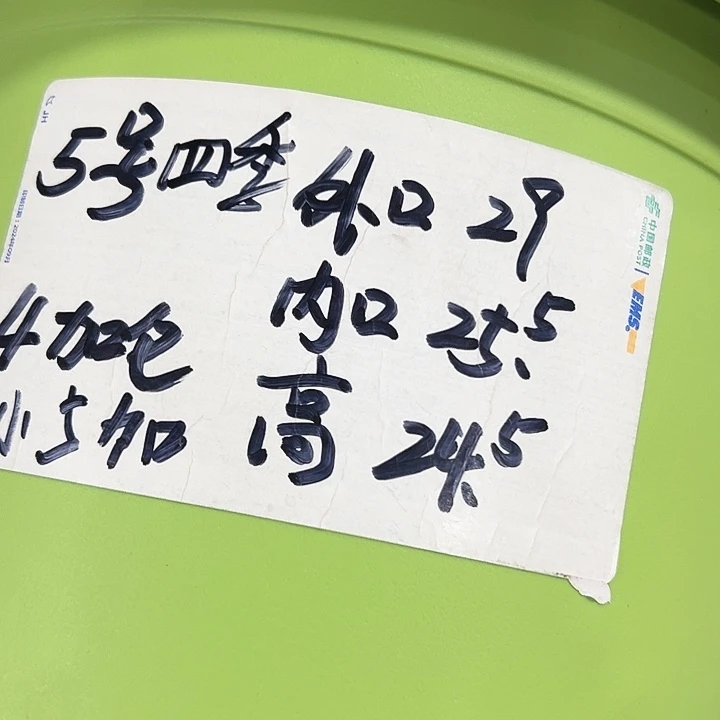 5号四季 外口 29
内口 25.5
4加仑
高 24.5
小5加
中国邮政
CHINA POST
EMS